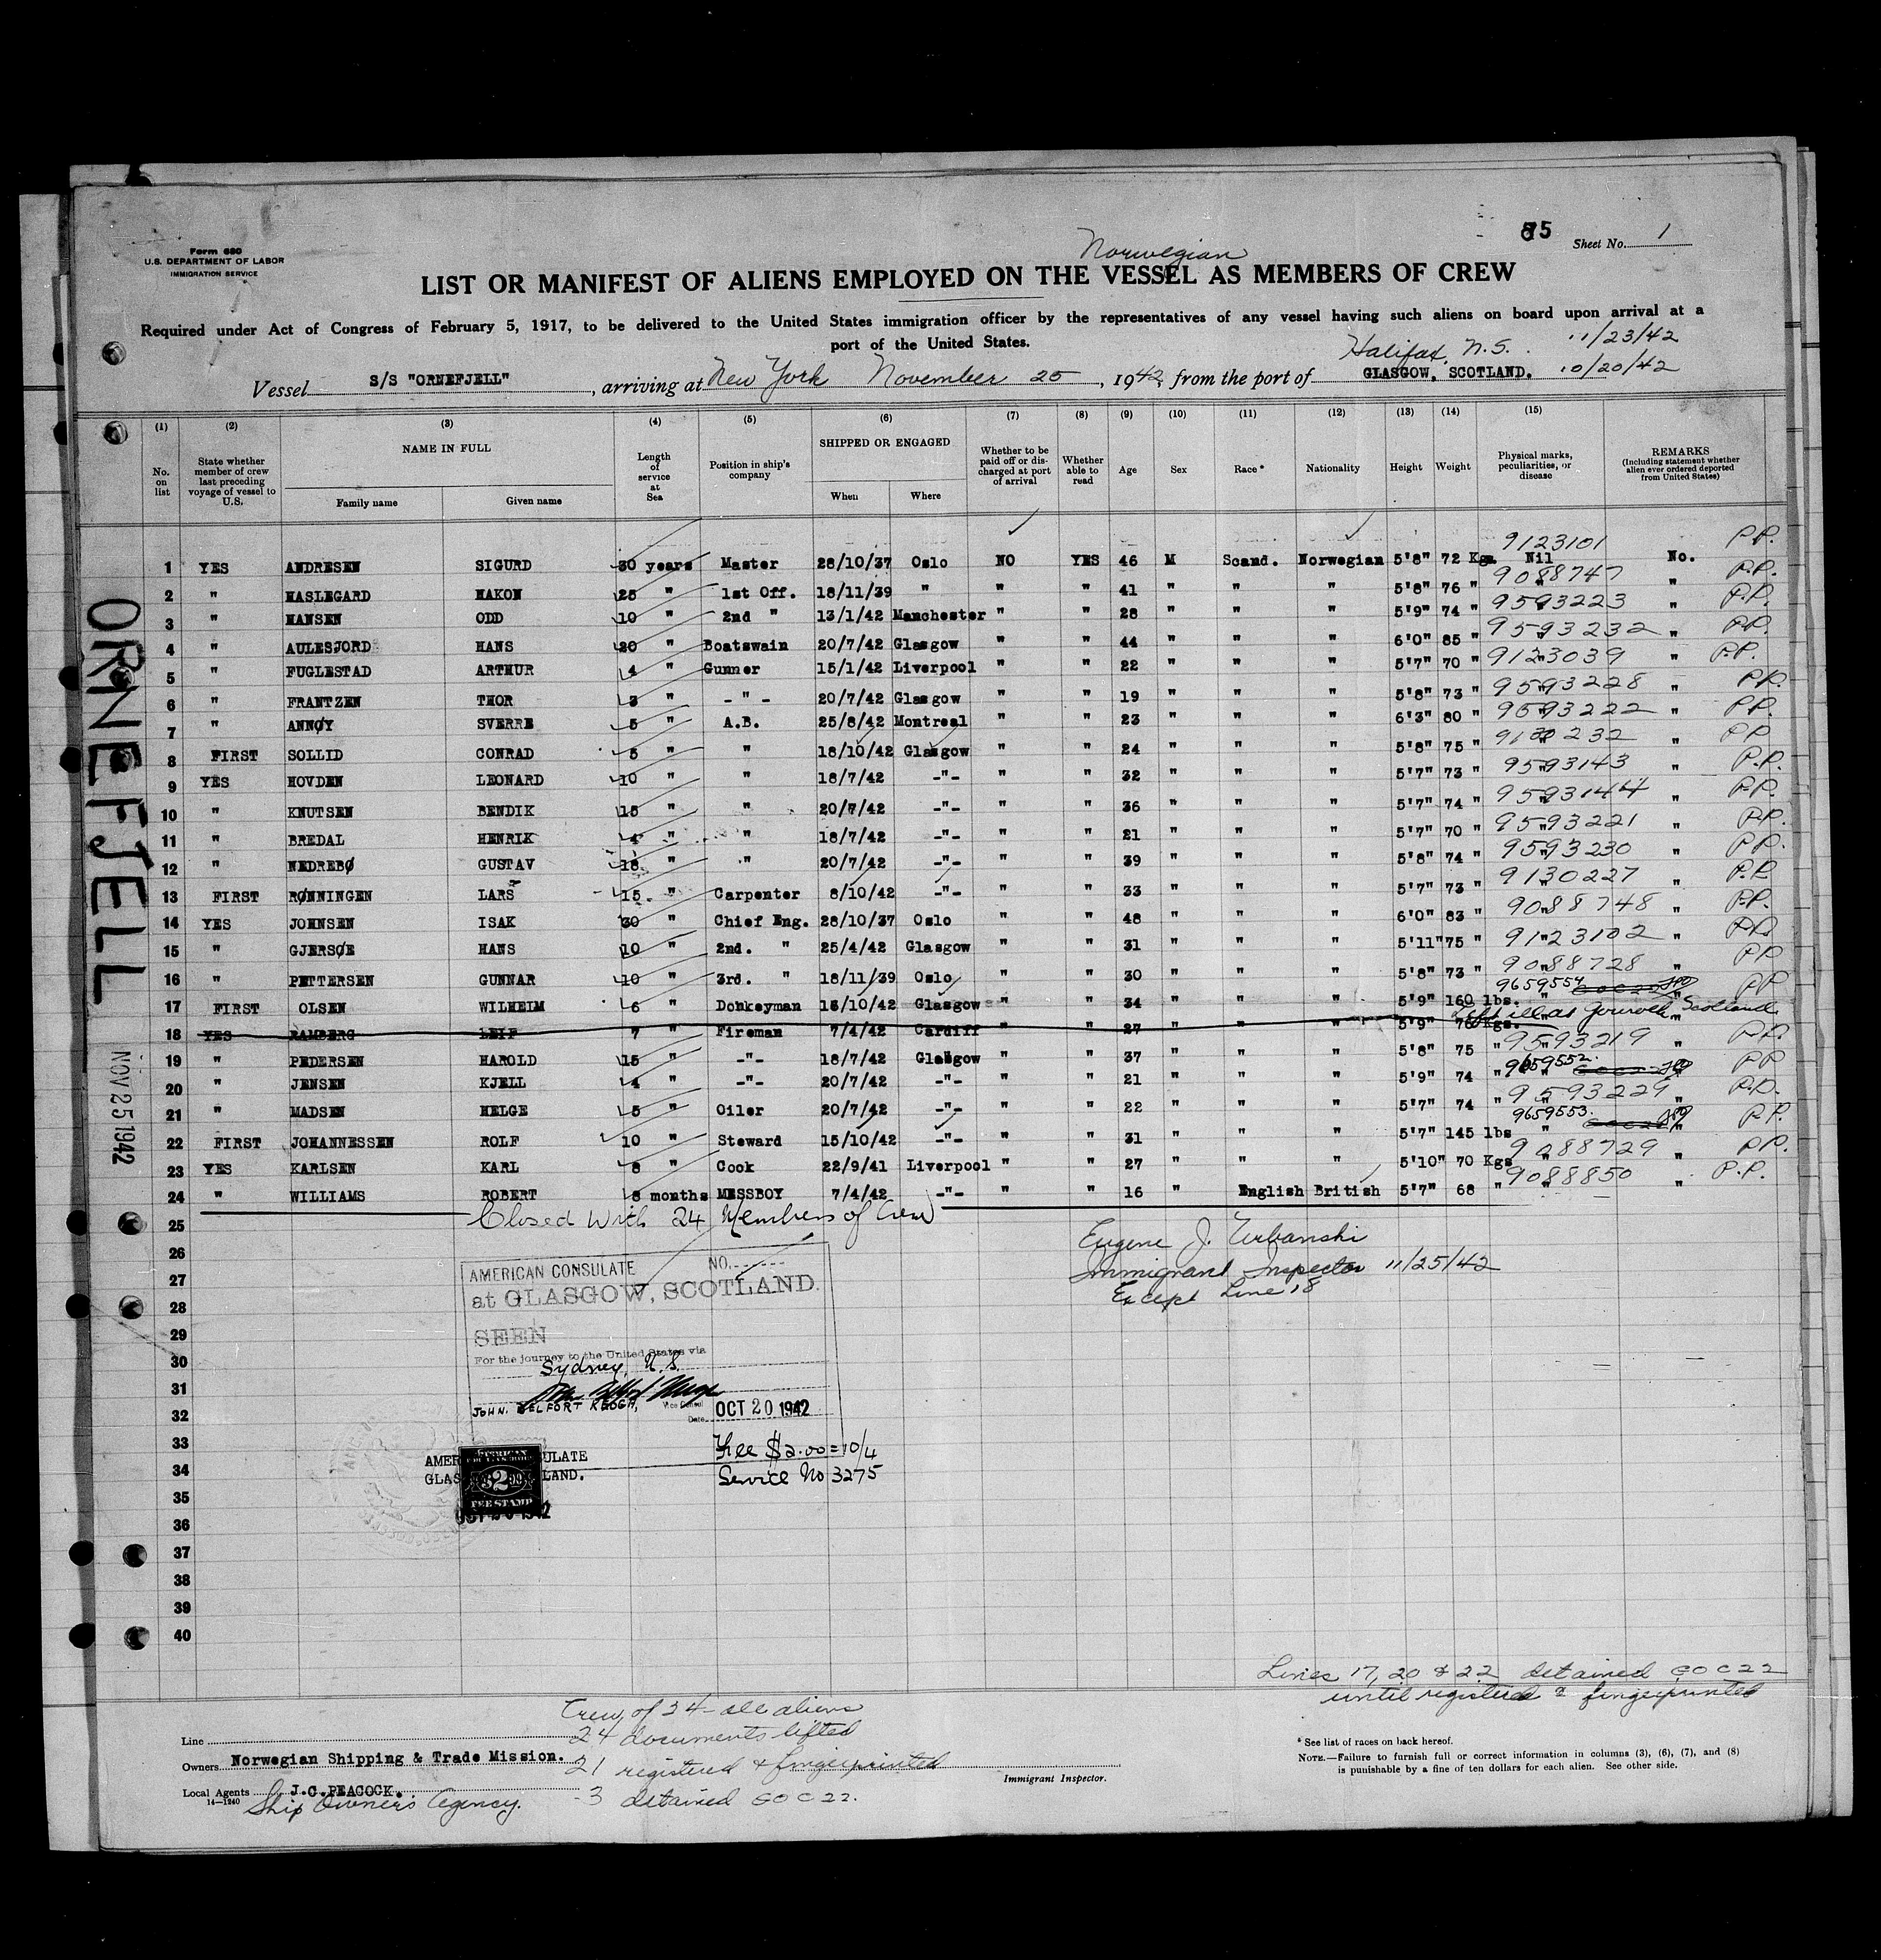 Norwegian
85
Sheet No. 1
Form 680
U.S. DEPARTMENT OF LABOR
IMMIGRATION SERVICE
LIST OR MANIFEST OF ALIENS EMPLOYED ON THE VESSEL AS MEMBERS OF CREW
Required under Act of Congress of February 5, 1917, to be delivered to the United States immigration officer by the representatives of any vessel having such aliens on board upon arrival at a
port of the United States.
Halifax, N.S. 11/23/42
Vessel S/S "ORNEFJELL", arriving at New York November 25, 1942, from the port of GLASGOW, SCOTLAND. 10/20/42
(1) (2) (3) (4) (5) (6) (7) (8) (9) (10) (11) (12) (13) (14) (15)
No. on list
State whether member of crew last preceding voyage of vessel to U.S.
NAME IN FULL
Family name
Given name
Length of service at Sea
Position in ship's company
SHIPPED OR ENGAGED
When
Where
Whether to be paid off or discharged at port of arrival
Whether able to read
Age
Sex
Race*
Nationality
Height
Weight
Physical marks, peculiarities, or disease
REMARKS
(Including statement whether alien ever ordered deported from United States)
1 YES ANDRESEN SIGURD 30 years Master 28/10/37 Oslo NO YES 46 M Scand. Norwegian 5'8" 72 Kgs. 9123101 Nil No. P.P.
2 " HASLEGARD HAKON 25 " 1st Off. 18/11/39 " " " 41 " " " 5'8" 76 " 9088747 " " P.P.
3 " HANSEN ODD 10 " 2nd " 13/1/42 Manchester " " 28 " " " 5'9" 74 " 9593223 " " P.P.
4 " AULESJORD HANS 20 " Boatswain 20/7/42 Glasgow " " 44 " " " 6'0" 85 " 9593232 " " P.P.
5 " FUGLESTAD ARTHUR 4 " Gunner 15/1/42 Liverpool " " 22 " " " 5'7" 70 " 9123039 " " P.P.
6 " FRANTZEN THOR 3 " - " - 20/7/42 Glasgow " " 19 " " " 5'8" 73 " 9593228 " " P.P.
7 " ANNØY SVERRE 5 " A.B. 25/8/42 Montreal " " 23 " " " 6'3" 80 " 9593222 " " P.P.
8 FIRST SOLLID CONRAD 5 " " 18/10/42 Glasgow " " 24 " " " 5'8" 75 " 9130232 " " P.P.
9 YES HOVDEN LEONARD 10 " " 18/7/42 -"- " " 32 " " " 5'7" 73 " 9593143 " " P.P.
10 " KNUTSEN BENDIK 15 " " 20/7/42 -"- " " 36 " " " 5'7" 74 " 9593144 " " P.P.
11 " BREDAL HENRIK 4 " " 18/7/42 -"- " " 21 " " " 5'7" 70 " 9593221 " " P.P.
12 " NEDREBØ GUSTAV 18 " " 20/7/42 -"- " " 39 " " " 5'8" 74 " 9593230 " " P.P.
13 FIRST RØNNINGEN LARS 15 " Carpenter 8/10/42 -"- " " 33 " " " 5'7" 73 " 9130227 " " P.P.
14 YES JOHNSEN ISAK 30 " Chief Eng. 28/10/37 Oslo " " 48 " " " 6'0" 83 " 9088748 " " P.P.
15 " GJERSØE HANS 10 " 2nd. " 25/4/42 Glasgow " " 31 " " " 5'11" 75 " 9123102 " " P.P.
16 " PETTERSEN GUNNAR 10 " 3rd. " 18/11/39 Oslo " " 30 " " " 5'8" 73 " 9088728 " " P.P.
17 FIRST OLSEN WILHELM 6 " Donkeyman 18/10/42 Glasgow " " 34 " " " 5'9" 160 lbs. 9659554 " P.P.
18 YES RAMBERG LEIF 7 " Fireman 7/4/42 Cardiff " " 27 " " " 5'9" 76 Kgs. Left ill at Gourock, Scotland
19 " PEDERSEN HAROLD 15 " -"- 18/7/42 Glasgow " " 37 " " " 5'8" 75 " 9593219 " P.P.
20 " JENSEN KJELL 4 " -"- 20/7/42 -"- " " 21 " " " 5'9" 74 " 9659552 " P.P.
21 " MADSEN HELGE 5 " Oiler 20/7/42 -"- " " 22 " " " 5'7" 74 " 9593229 " P.P.
22 FIRST JOHANNESSEN ROLF 10 " Steward 15/10/42 -"- " " 31 " " " 5'7" 145 lbs 9659553 " P.P.
23 YES KARLSEN KARL 8 " Cook 22/9/41 Liverpool " " 27 " " " 5'10" 70 Kgs 9088729 " " P.P.
24 " WILLIAMS ROBERT 8 months MESSBOY 7/4/42 -"- " " 16 " English British 5'7" 68 " 9088850 " " P.P.
25 Closed with 24 Members of Crew
Eugene J. Urbanski
26
Immigrant Inspector 11/25/42
27
Except Line 18
28
29
30
31
32
33
34
35
36
37
38
39
40
ORNEFJELL
NOV 25 1942
AMERICAN CONSULATE NO.
at GLASGOW, SCOTLAND.
SEEN
For the journey to the United States via
Sydney, N.S.
JOHN BELFORT KEOGH, Vice Consul
Date OCT 20 1942
Fee $2.00 = 10/4
Service No 3275
AMERICAN CONSULATE
GLASGOW, SCOTLAND.
FEE STAMP
OCT 20 1942
Lines 17, 20 & 22 detained GOC 22
until registered & fingerprinted
Crew of 24 - all aliens
24 documents lifted
21 registered & fingerprinted
3 detained GOC 22.
Line
Owners Norwegian Shipping & Trade Mission.
Local Agents J.C. PEACOCK.
14—1240
Ship Owners Agency.
Immigrant Inspector.
* See list of races on back hereof.
NOTE.—Failure to furnish full or correct information in columns (3), (6), (7), and (8)
is punishable by a fine of ten dollars for each alien. See other side.